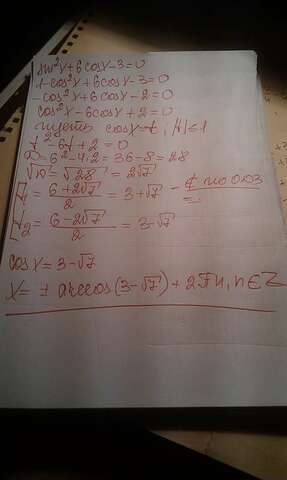 sin²x+6cosx-3=0
1-cos²x+6cosx-3=0
-cos²x+6cosx-2=0
cos²x-6cosx+2=0
пусть cosx=t, |t|≤1
t²-6t+2=0
D=6²-4·2=36-8=28
√D=√28=2√7
t₁=(6+2√7)/2=3+√7 - ∉ по ОДЗ
t₂=(6-2√7)/2=3-√7
cosx=3-√7
x=±arccos(3-√7)+2πn, n∈Z